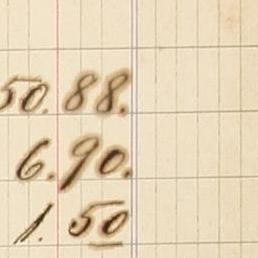 50.88.
6.90.
1.50